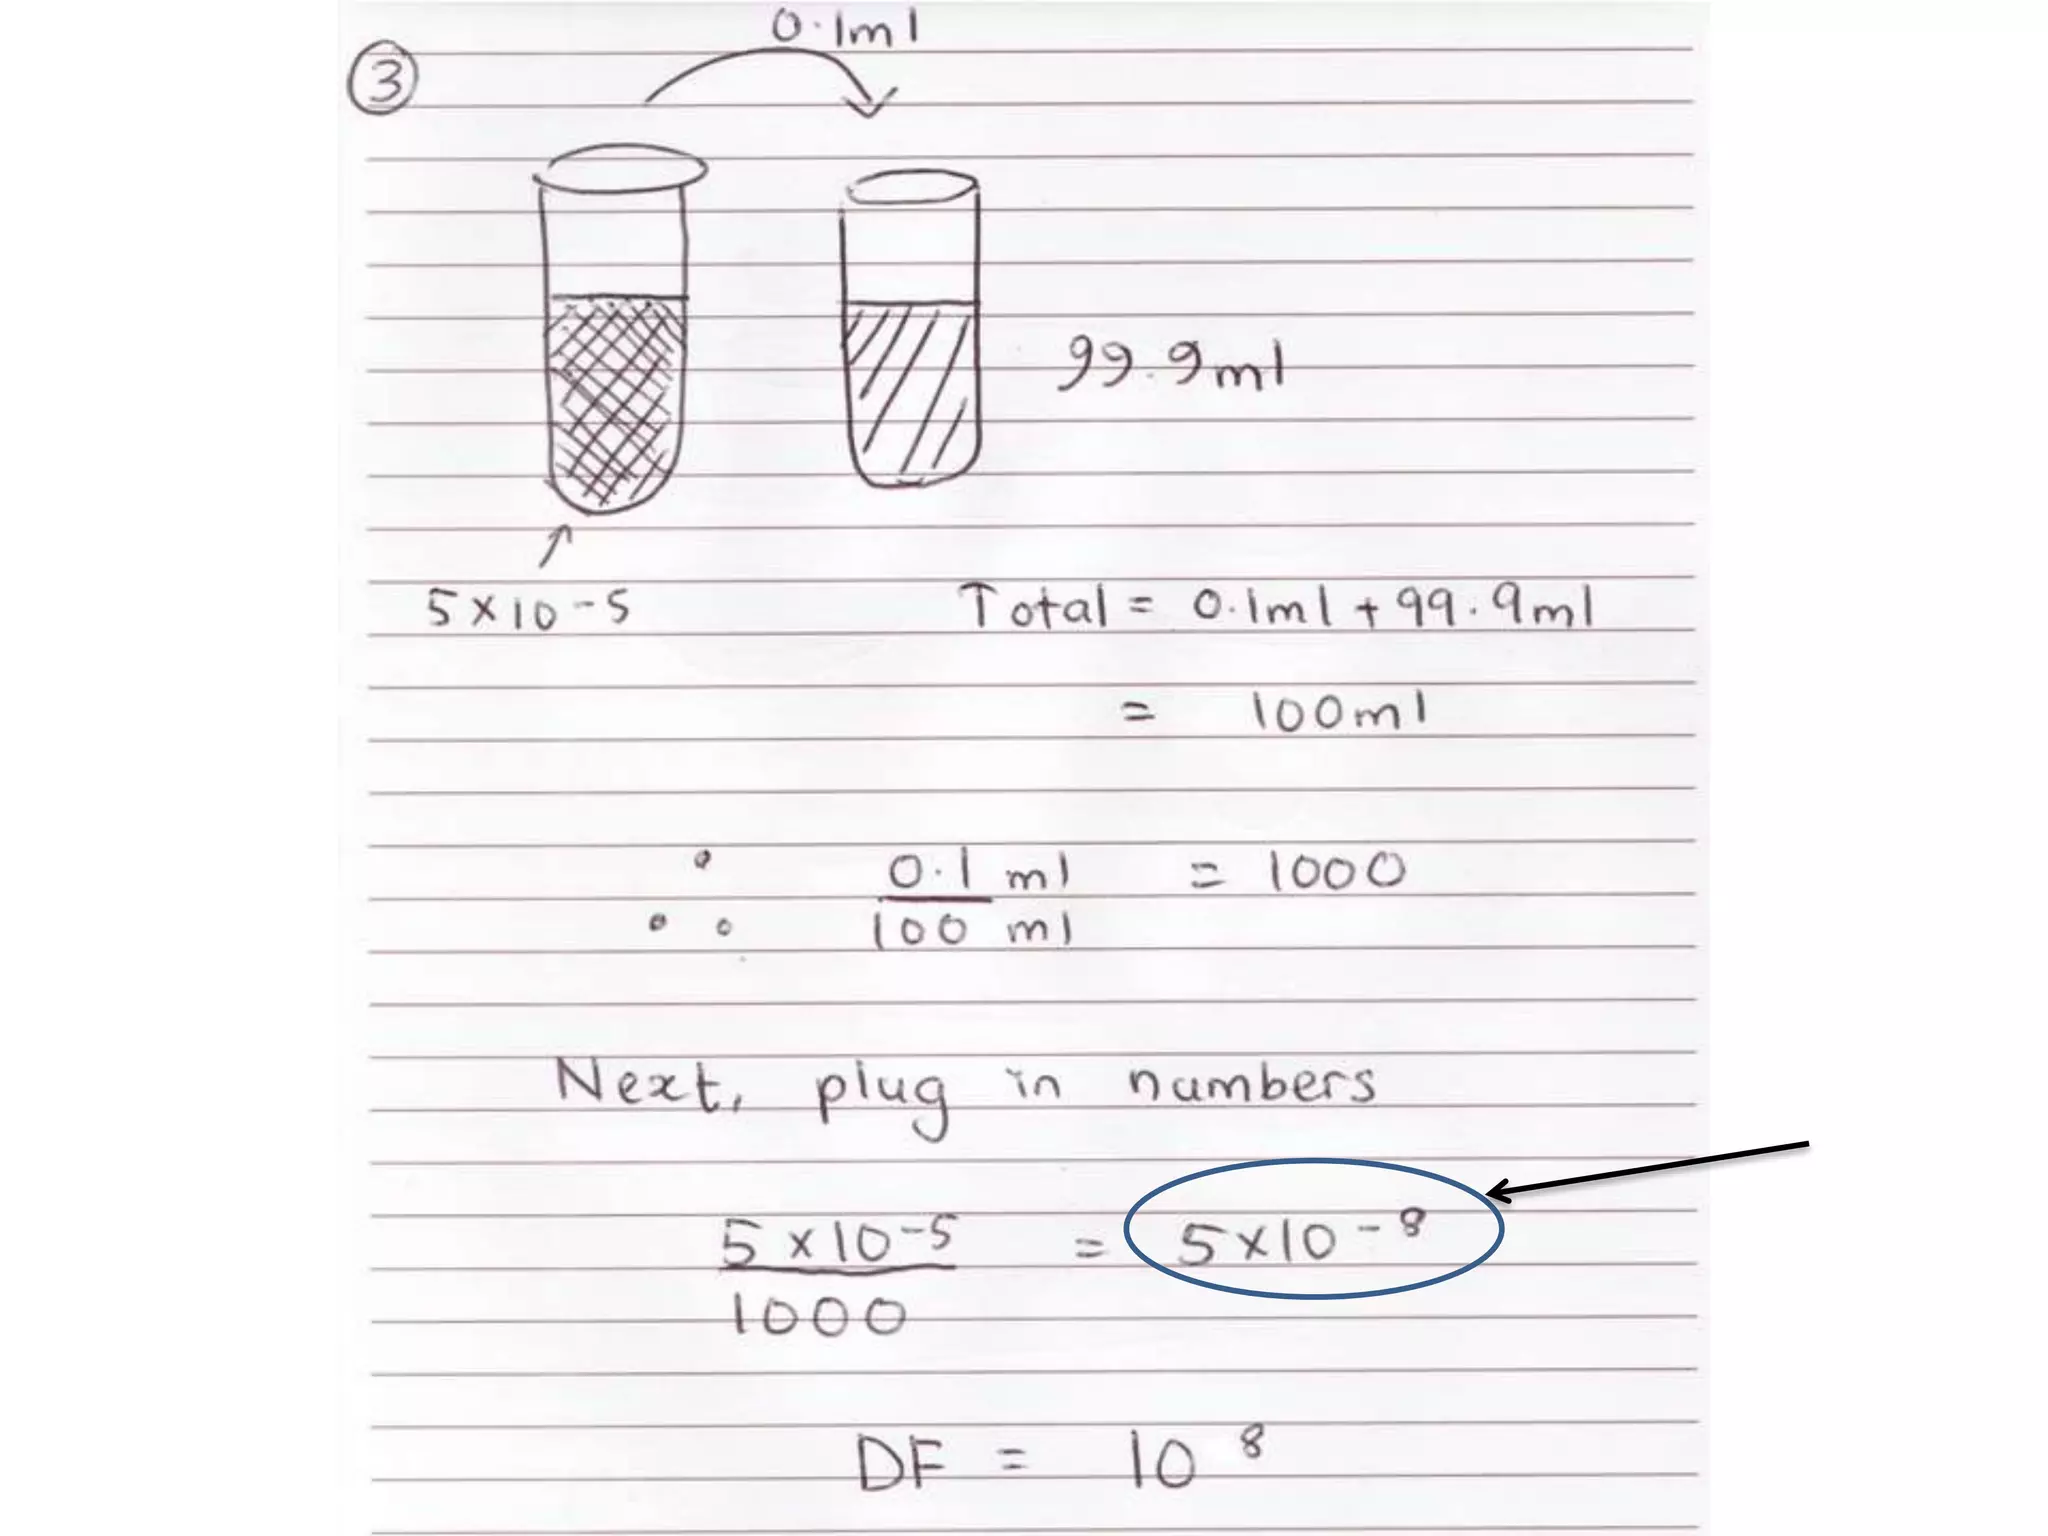 0.1ml
3
99.9ml
5 x 10 -5
Total = 0.1ml + 99.9ml
= 100ml
∴ 0.1 ml = 1000
100 ml
Next, plug in numbers
5 x 10 -5 = 5x10 -8
1000
DF = 10 8